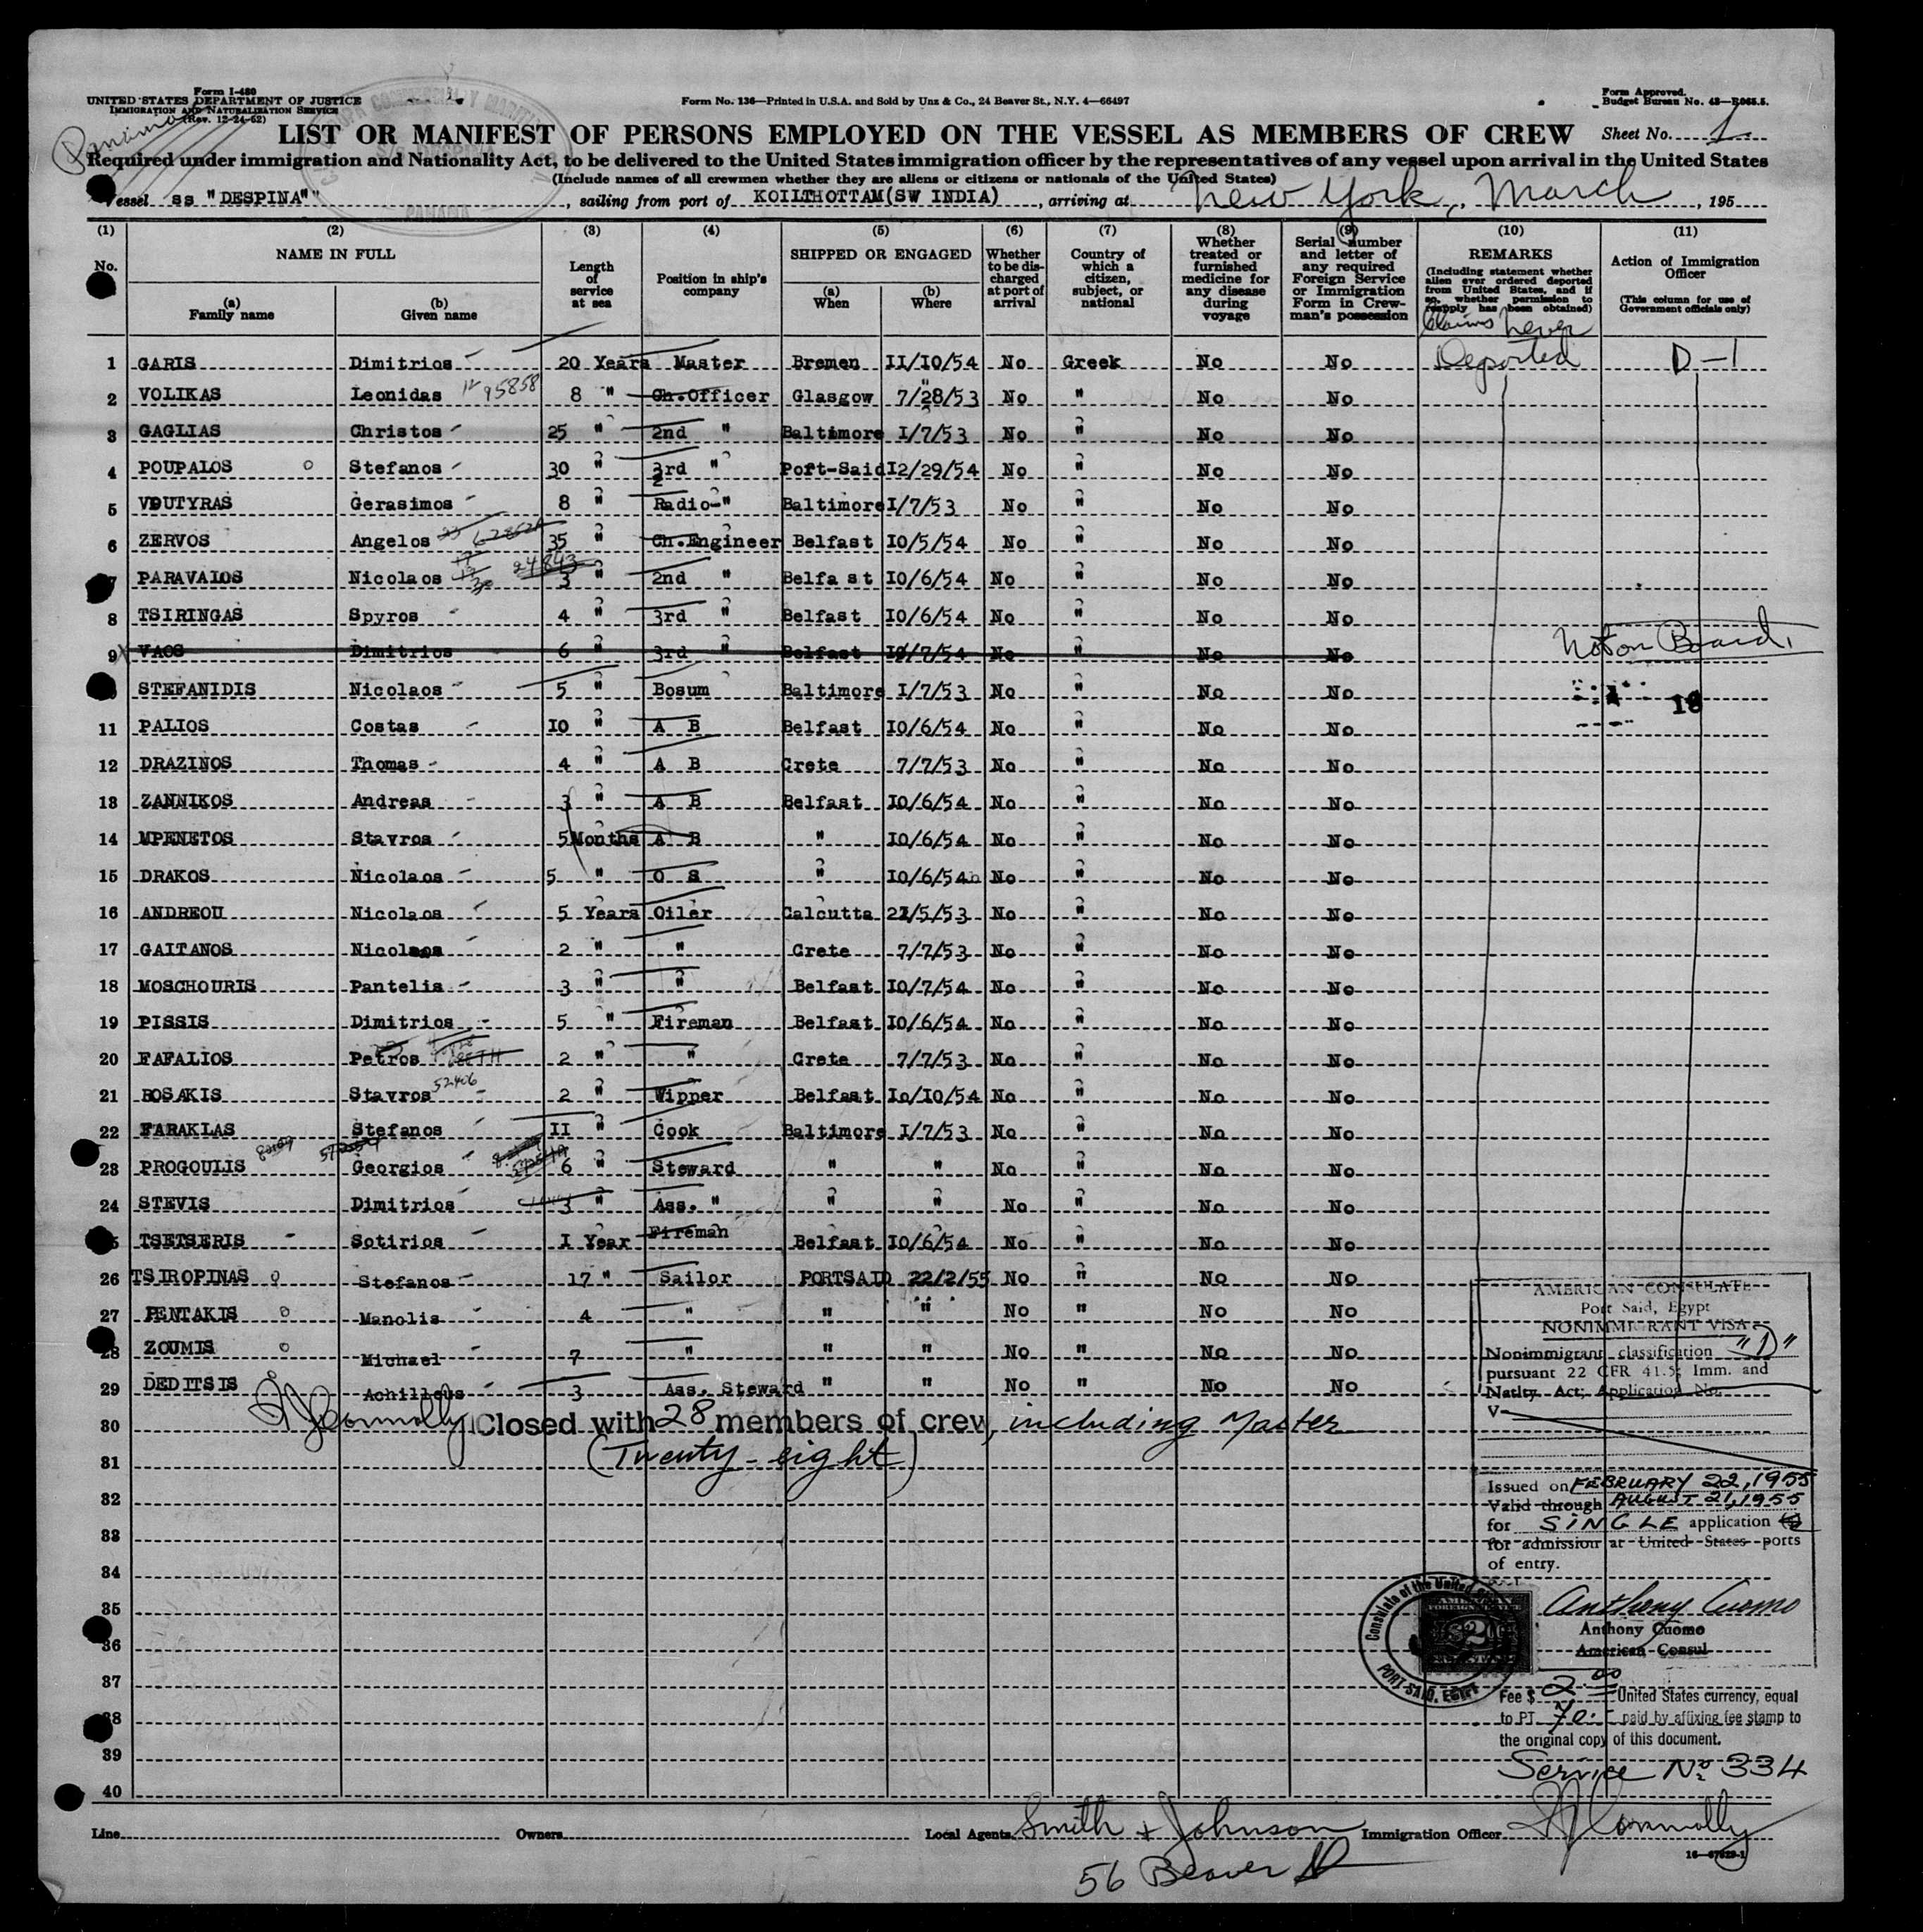 Form I-480
UNITED STATES DEPARTMENT OF JUSTICE
IMMIGRATION AND NATURALIZATION SERVICE
(Rev. 12-24-52)
Form No. 136—Printed in U.S.A. and Sold by Unz & Co., 24 Beaver St., N.Y. 4—66497
Form Approved.
Budget Bureau No. 43—R065.5.
Panama
LIST OR MANIFEST OF PERSONS EMPLOYED ON THE VESSEL AS MEMBERS OF CREW Sheet No. 1.
Required under immigration and Nationality Act, to be delivered to the United States immigration officer by the representatives of any vessel upon arrival in the United States
(Include names of all crewmen whether they are aliens or citizens or nationals of the United States)
Vessel ss "DESPINA" , sailing from port of KOILTHOTTAM(SW INDIA) , arriving at New York, March , 195
PANAMA
(1) (2) (3) (4) (5) (6) (7) (8) (9) (10) (11)
No. NAME IN FULL Length of service at sea Position in ship's company SHIPPED OR ENGAGED Whether to be discharged at port of arrival Country of which a citizen, subject, or national Whether treated or furnished medicine for any disease during voyage Serial number and letter of any required Foreign Service or Immigration Form in Crewman's possession REMARKS (Including statement whether alien ever ordered deported from United States, and if so, whether permission to reapply has been obtained) Action of Immigration Officer (This column for use of Government officials only)
(a) Family name (b) Given name (a) When (b) Where
Claims never
1 GARIS Dimitrios 20 Years Master Bremen II/10/54 No Greek No No Deported D-1
2 VOLIKAS Leonidas 95858 8 " Ch.Officer Glasgow 7/28/53 No " No No
3 GAGLIAS Christos 25 " 2nd " Baltimore I/7/53 No " No No
4 POUPALOS Stefanos 30 " 3rd " Port-Said I2/29/54 No " No No
5 VOUTYRAS Gerasimos 8 " Radio-" Baltimore I/7/53 No " No No
6 ZERVOS Angelos 35 " Ch.Engineer Belfast I0/5/54 No " No No
7 PARAVALOS Nicolaos 24843 3 " 2nd " Belfa st I0/6/54 No " No No
8 TSIRINGAS Spyros 4 " 3rd " Belfast I0/6/54 No " No No
9 VAOS Dimitrios 6 " 3rd " Belfast I0/7/54 No " No No Not on Board.
STEFANIDIS Nicolaos 5 " Bosum Baltimore I/7/53 No " No No
11 PALIOS Costas I0 " A B Belfast I0/6/54 No " No No
12 DRAZINOS Thomas 4 " A B Crete 7/7/53 No " No No
13 ZANNIKOS Andreas 3 " A B Belfast I0/6/54 No " No No
14 MPENETOS Stavros 5 Months A B " I0/6/54 No " No No
15 DRAKOS Nicolaos 5 " O S " I0/6/54 No " No No
16 ANDREOU Nicolaos 5 Years Oiler Calcutta /5/53 No " No No
17 GAITANOS Nicolaos 2 " " Crete 7/7/53 No " No No
18 MOSCHOURIS Pantelis 3 " " Belfast I0/7/54 No " No No
19 PISSIS Dimitrios 5 " Fireman Belfast I0/6/54 No " No No
20 FAFALIOS Petros 2 " " Crete 7/7/53 No " No No
21 ROSAKIS Stavros 52406 2 " Wipper Belfast Io/I0/54 No " No No
22 FARAKLAS Stefanos II " Cook Baltimore I/7/53 No " No No
23 PROGOULIS Georgios 6 " Steward " " No " No No
24 STEVIS Dimitrios 3 " Ass. " " " No " No No
TSETSERIS Sotirios I Year Fireman Belfast I0/6/54 No " No No
26 TSIROPINAS Stefanos 17 " Sailor PORTSAID 22/2/55 No " No No
27 PENTAKIS Manolis 4 " " " No " No No
28 ZOUMIS Michael 7 " " " No " No No
29 DEDITSIS Achilleus 3 Ass. Steward " " No " No No
30 Closed with 28 members of crew, including Master
31 (Twenty-eight)
32
33
34
35
36
37
38
39
40
AMERICAN CONSULATE
Port Said, Egypt
NONIMMIGRANT VISA
Nonimmigrant classification "D"
pursuant 22 CFR 41.5; Imm. and
Natlty. Act; Application No.
V-
Issued on FEBRUARY 22, 1955
Valid through AUGUST 21, 1955
for SINGLE application
for admission at United States ports
of entry.
Consulate of the United
PORT SAID, EGYPT
AMERICAN
Anthony Cuomo
Anthony Cuomo
American Consul
Fee $ 2.00 United States currency, equal
to PT 70.- paid by affixing fee stamp to
the original copy of this document.
Service No 334
Line Owners Local Agents Smith & Johnson Immigration Officer Connolly
56 Beaver St
16—67829-1